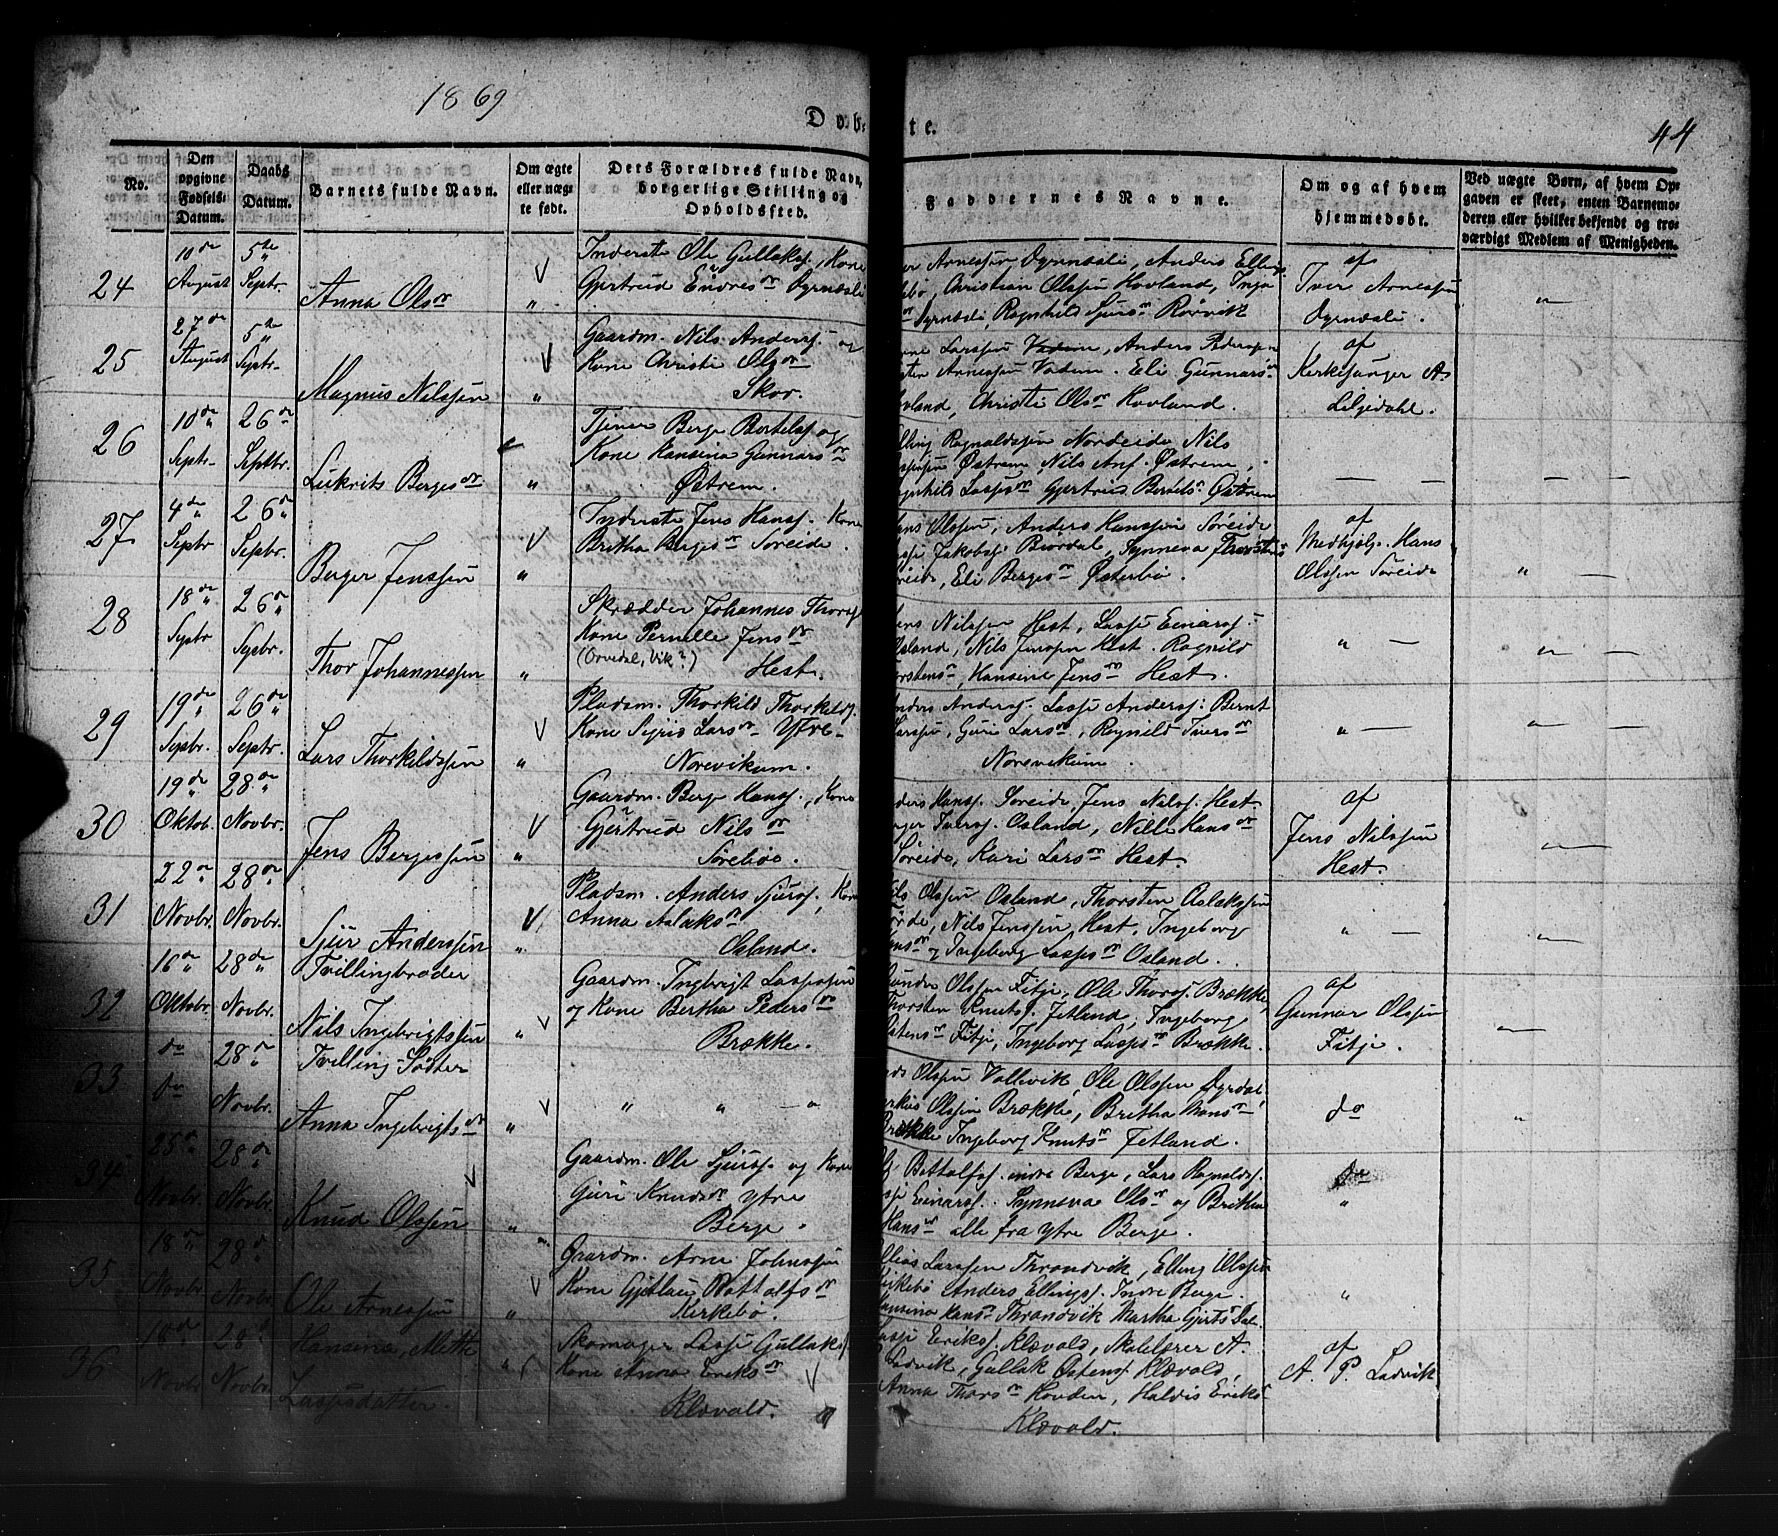 1869
Døbte.
44
No.
Den opgivne Fødsels-Datum.
Daabs Datum.
Barnets fulde Navn.
Om ægte eller uægte født.
Dets Forældres fulde Navn, borgerlige Stilling og Opholdssted.
Faddernes Navne.
Om og af hvem hjemmedøbt.
Ved uægte Børn, af hvem Opgaven er skeet, enten Barnemoderen eller hvilket bekjendt og troværdigt Medlem af Menigheden.
24
10de August
5te Septr.
Anna Olsdr
Inderste Ole Gullaks., Kone
Gjertrud Endresdr Dyrndali
Arnessen Dyrndali, Anders Ellings
Christian Olsen Hovland, Inga
Dyrndali, Ragnhild Sjursdr Rørvik
af
Iver Arnessen
Dyrndali.
25
27de August
5te Septr.
Magnus Nilssen
Gaardm. Nils Anders. og
Kone Christi Olsdr
Skor.
Larssen Vadem, Anders Pedersen
Arnessen Vadem. Eli Gunnarsdr
Hovland, Christi Olsdr Hovland.
af
Kirkesanger A.
Liljedahl.
26
10de Septr.
26de Septbr.
Lukrits Bergesdr
Tjener Berge Bottolfs. og
Kone Hansina Gunnarsdr
Østrem.
Elling Ragnaldssen Nordeide Nils
Østrem, Nils And. Østrem,
Ragnhild Lassesdr Gjertrud Berielsdr Østrem
27
4de Septbr
26de Septbr.
Berger Jenssen
Inderste Jens Hans. Kone
Britha Bergesdr Søreide.
Hans Olssen, Anders Hanssen Søreide
Jakobs. Bjordal, Synneva Thorstensdr
Søreide, Eli Bergesdr Østerbø.
af
Medhjælp. Hans
Olssen Søreide
28
18de Septbr
26de Septbr.
Thor Johannessen
Skrædder Johannes Thors.
Kone Pernelle Jensdr
(Orvedal, Vik?)
Hest.
Jens Nilssen Hest, Lasse Einars.
Osland, Nils Jenssen Hest. Ragnild
Thorstensdr, Hansine Jensdr Hest.
29
19de Septbr.
26de Septbr.
Lars Thorkildssen
Pladsm. Thorkild Thorkilds.
Kone Sigrid Larsdr Ytre-
Norevikum.
Anders Anders. Lasse Anders. Bernt
Larssen, Guri Larsdr, Regnild Iversdr
Norevikum.
30
19de Oktob.
28de Novbr.
Jens Bergessen
Gaardm. Berge Hans., Kone
Gjertrud Nilsdr
Sørebøe.
Anders Hans. Søreide, Jens Nils. Hest
Ivers. Osland, Nille Hansdr
Søreide, Kari Larsdr Hest.
af
Jens Nilssen
Hest.
31
22de Novbr.
28de Novbr.
Sjur Anderssen
Pladsm. Anders Sjurs., Kone
Anna Aslaksdr
Osland.
Nils Olssen Osland, Thorsten Aslakssen
Førde, Nils Jenssen Hest, Ingeborg
Hansdr og Ingeborg Lassesdr Osland.
32
16de Oktobr.
28de Novbr.
Tvillingbroder
Nils Ingebrigtssen
Gaardm. Ingbrigt Lassessen
og Kone Bertha Pedersdr
Brække.
Gunder Olssen Fitje, Ole Thors. Brække,
Thorsten Knuts. Jetland, Ingeborg
Fitje, Ingeborg Lassesdr Brække.
af
Gunnar Olssen
Fitje.
33
do
do
28de Novbr.
Tvilling Søster
Anna Ingebrigtsdr
Olssen Vallevik, Ole Olssen Dyrdal,
Markus Olssen Brække, Britha Hansdr
Brække Ingeborg Knutsdr Jetland.
do
34
25de Novbr.
28de Novbr.
Knud Olssen
Gaardm. Ole Sjurs. og Kone
Guri Knudsdr ytre
Berge.
Bottolfs. indre Berge, Lars Ragnalds.
Lasse Einars. Synneva Olsdr og Britha
Hansdr alle fra ytre Berge.
do
35
18de Novbr.
28de Novbr.
Ole Arnessen
Gaardm. Arne Johnssen
Kone Gjetlau Bottolfsdr
Kirkebø.
Elias Larssen Thrandvik, Elling Olssen
Kirkebø Anders Ellings. Indre Berge.
Hansina Hansdr Thrandvik Martha Gjertsdr Dal.
36
18de Novbr.
28de Novbr.
Hansina, Mette
Lassesdatter.
Skomager Lasse Gullaks.
Kone Anna Eriksdr
Klævold.
Lasse Eriks. Klævold, Skolelærer A.
Ladvik, Gullak Østens. Klævold,
Anna Thorsdr Hovden, Haldis Eriksdr
Klævold.
af
A. P. Ladvik